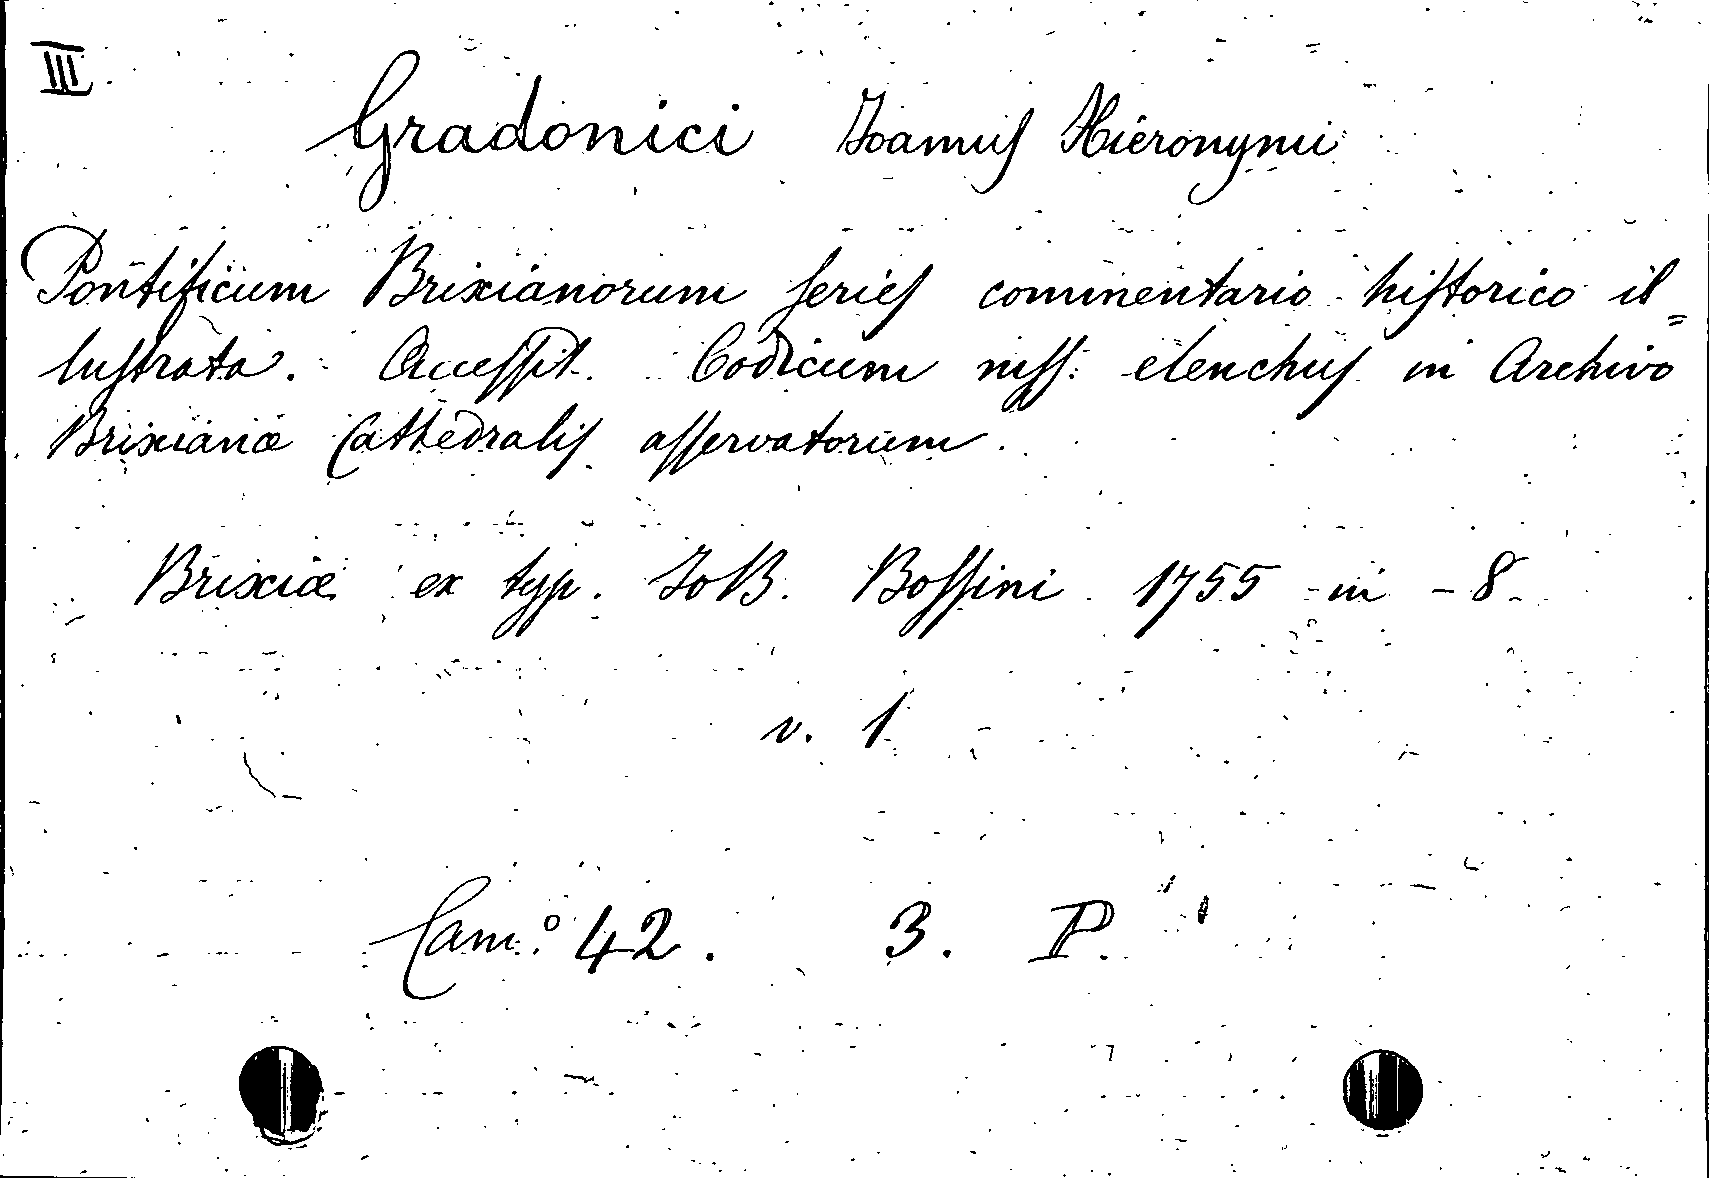 III
Gradonici Joannis Hieronymi
Pontificum Brixianorum series commentario historico il=
lustrata. Accessit. Codicum mss. elenchus in Archivo
Brixianæ Cathedralis asservatorum.
Brixiæ ex typ. Jo B. Bossini 1755 in - 8
v. 1
Cam.º 42. 3. P.